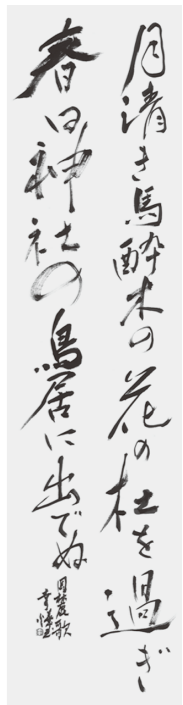 月清き馬酔木の花の杜を過ぎ
春日神社の鳥居に出でぬ